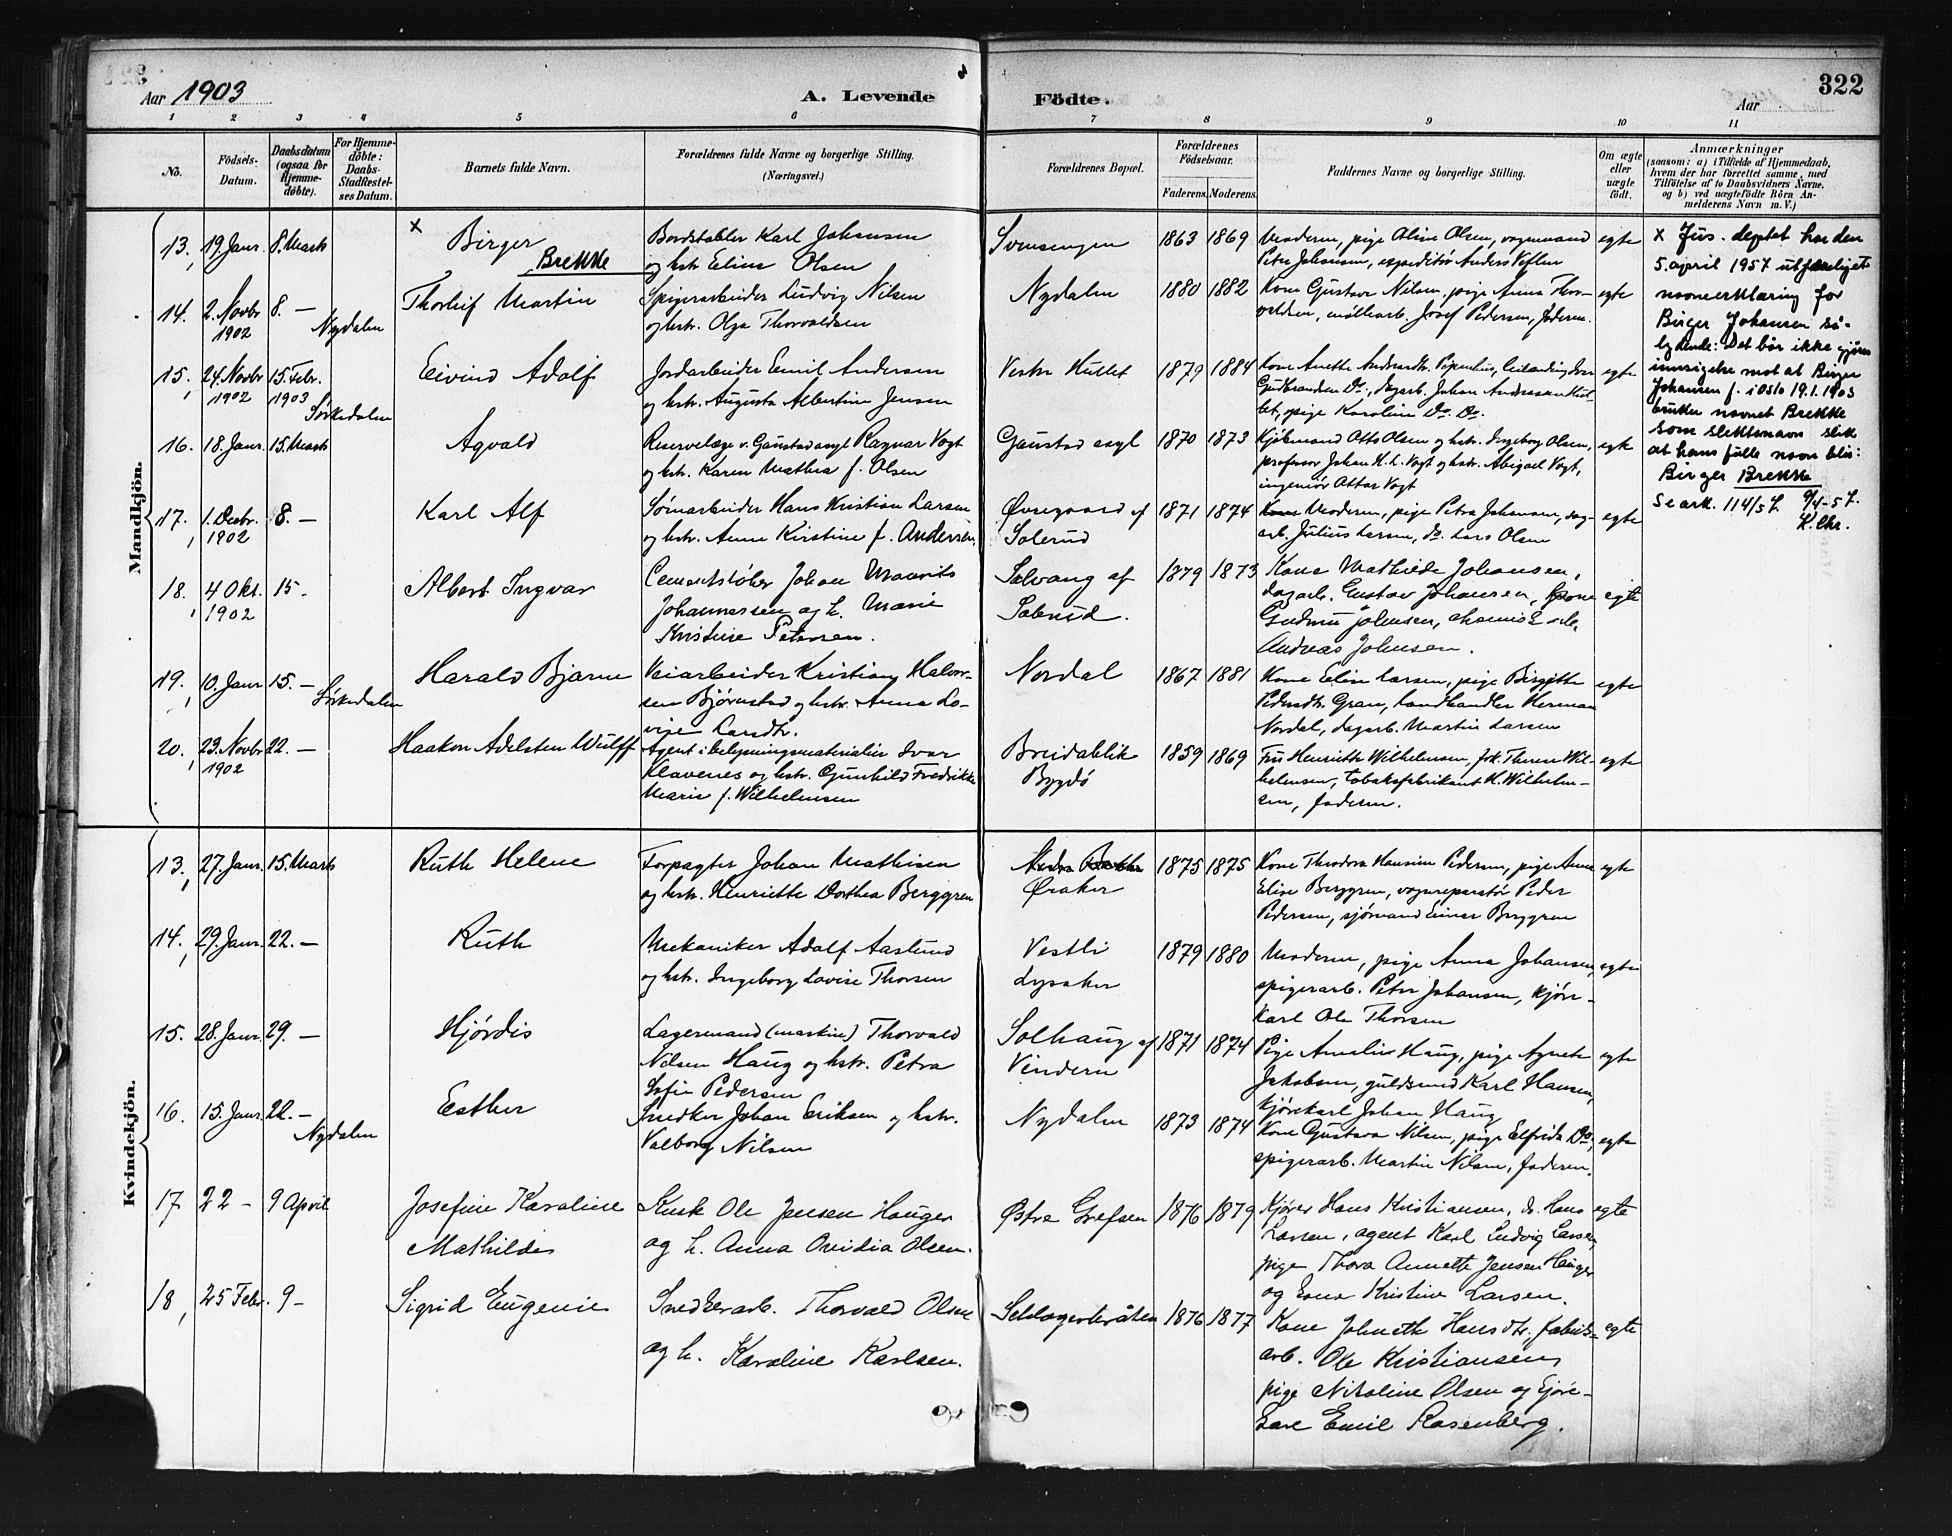 322
Aar 1903
A. Levende
Födte.
Aar
1 2 3 4 5 6 7 8 9 10 11
No.
Födsels-
Datum.
Daabsdatum
(ogsaa for
Hjemme-
döbte).
For Hjemme-
döbte:
Daabs-
Stadfæstel-
ses Datum.
Barnets fulde Navn.
Forældrenes fulde Navne og borgerlige Stilling.
(Næringsvei.)
Forældrenes Bopæl.
Forældrenes
Födselsaar.
Faderens. Moderens.
Faddernes Navne og borgerlige Stilling.
Om ægte
eller
uægte
födt.
Anmærkninger
(saasom: a) i Tilfælde af Hjemmedaab,
hvem der har forrettet samme, med
Tilföielse af to Daabsvidners Navne,
og b) ved uægtefödte Börn An-
melderens Navn m. V.)
Mandkjön.
13, 19 Janr. 8. Marts
x Birger
Brekke
Bordstabler Karl Johansen
og hstr. Eline Olsen
Svensengen 1863 1869
Moderen, pige Oline Olsen, vognmand
Peter Johansen, expeditör Anders Veflen
egte
14. 2. Novbr 8. —
1902 Nydalen
Thorleif Martin
Spigerarbeider Ludvig Nilsen
og hstr. Olga Thorvaldsen
Nydalen 1880 1882
Kone Gustava Nilsen, pige Anna Thor-
valdsen, møllearb. Josef Pedersen, faderen.
egte
15, 24. Novbr 15. Febr.
1902 1903
Sørkedalen
Eivind Adolf
Jordarbeider Emil Andersen
og hstr. Augusta Albertine Jensen
Vestre Hullet 1879 1884
Kone Anette Andersdtr. Pipenlien,
Gudbrandsen Do:, dagarb. Johan Andreassen Hul-
let, pige Karoline Do. Do.
egte
16. 18. Janr. 15. Marts
Agvald
Reservelæge v. Gaustad asyl Ragnar Vogt
og hstr. Karen Mathea f. Olsen
Gaustad asyl 1870 1873
Kjøbmand Otto Olsen og hstr. Ingeborg Olsen,
professor Johan H. L. Vogt og hstr. Abigael Vogt,
ingeniør Ottar Vogt
egte
17. 1. Decbr. 8. —
1902
Karl Alf
Sømarbeider Hans Kristian Larsen
og hstr. Anne Kirstine f. Andersen.
Øvregaard af
Solerud
1871 1874
Kone Moderen, pige Petra Johansen, dag-
arb. Julius Larsen, do. Lars Olsen
egte
18. 4 Okt. 15 -
1902
Albert Ingvar
Cementstøber Johan Maurits
Johannersen og h. Marie
Kristine Petersen.
Solvang af
Solerud.
1879 1873
Kone Mathilde Johansen,
dagarb. Gustav Johansen, kone
Gudrun Johnsen,
Andreas Johnsen.
egte
19. 10. Janr 15. — Sørkedalen
Harald Bjarne
Veiarbeider Kristian Halvor-
sen Bjørnstad og hstr. Anna Lo-
vise Larsdtr.
Nordal 1867 1881
Kone Elise Larsen, pige Birgitte
Pedersdtr. Gran, Landhandler Herman
Nordal, dagarb. Martin Larsen
egte
20. 23. Novbr 22. —
1902
Haakon Adelsten Wulff
Agent i belysningsmaterialier Ivar
Klavenes og hstr. Gunhild Fredrikke
Marie f. Wilhelmsen
Breidablik
Bygdö
1859 1869
Fru Henriette Wilhelmsen, frk. Therese Wil-
helmsen, tobaksfabrikant H. Wilhelm-
sen, faderen.
egte
x Jus. deptet har den
5. april 1957 utferdiget
navneerklæring for
Birger Johansen så-
lydende: Det bør ikke gjøres
innsigelse mot at Birger
Johansen f. i Oslo 19.1.1903
bruker navnet Brekke
som slektsnavn slik
at hans fulle navn blir:
Birger Brekke
Se ark. 114/57. 9/4-57.
K. Chr.
Kvindekjön.
13, 27. Janr. 15. Marts
Ruth Helene
Forpagter Johan Mathisen
og hstr. Henriette Dorthea Berggren
Øraker
1875 1875
Kone Theodora Hansine Pedersen, pige Anna
Elise Berggren, vognreparatör Peder
Pedersen, sjømand Einar Berggren
egte
14, 29. Janr. 22. —
Ruth
Mekaniker Adolf Aaslund
og hstr. Ingeborg Lovise Thorsen
Vestli
Lysaker
1879 1880
Moderen, pige Anna Johansen,
spigerarb. Peter Johansen, kjøre-
karl Ole Thorsen
egte
15. 28. Janr. 29. —
Hjördis
Lagermand (maskin) Thorvald
Nilsen Haug og hstr. Petra
Sofie Pedersen
Solhaug af
Vinderen
1871 1874
Pige Amalie Haug, pige Agnete
Jakobsen, guldsmed Karl Hansen,
kjørekarl Johan Haug
egte
16. 15. Janr. 22. —
Nydalen
Esther
Snedker Johan Eriksen og hstr.
Valborg Nilsen
Nydalen 1873 1874
Kone Gustava Nilsen, pige Elfrida Do.,
spigerarb. Martin Nilsen, faderen.
egte
17 22 - 9 April
Josefine Karoline
Mathilde
Kusk Ole Jensen Hauger
og h. Anna Ovidia Olsen.
Østre Grefsen 1876 1879
Kjører Hans Kristiansen, do. Hans
Larsen, agent Karl Ludvig Larsen,
pige Thora Annette Jensen Hauger
og Kristine Larsen.
egte
18, 25 Febr. 9 -
Sigrid Eugenie
Snedkerarb. Thorvald Olsen
og h. Karoline Karlsen.
1876 1877
Kone Johnette Hansdtr. fabrik-
arb. Ole Kristiansen,
pige Nikoline Olsen og kjøre-
kare Emil Rosenberg.
egte